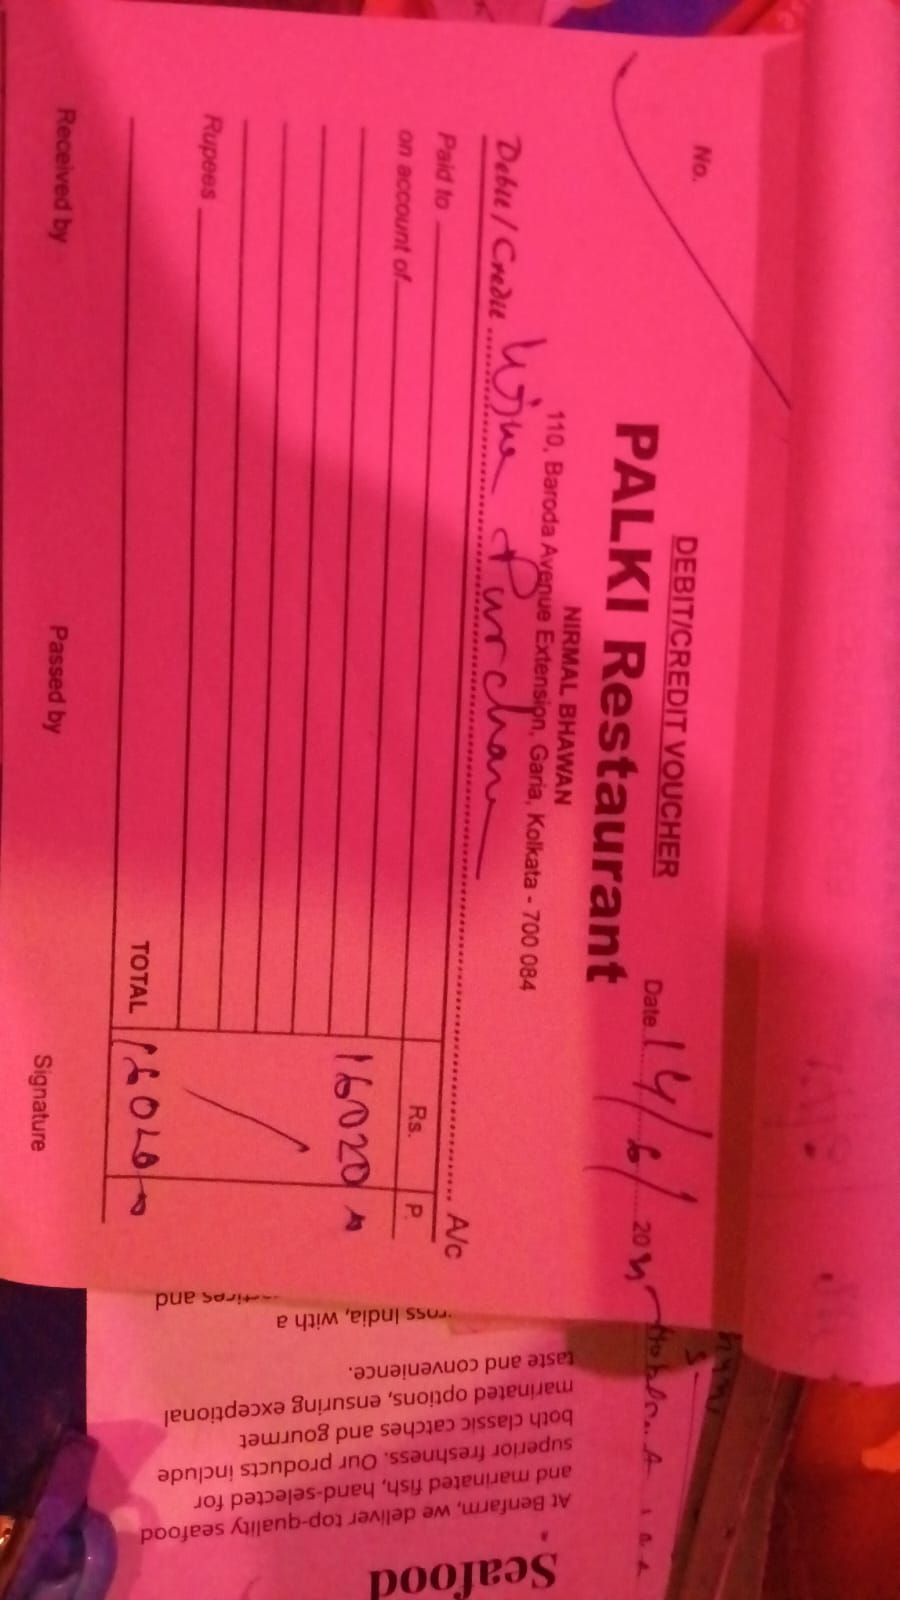 No.
DEBIT/CREDIT VOUCHER
Date 14/6/ 20
PALKI Restaurant
NIRMAL BHAWAN
110, Baroda Avenue Extension, Garia, Kolkata - 700 084
Debit/Credit Wine Purchase A/c
Paid to
on account of Rs. P.
16020
Rupees
TOTAL 16020
Received by Passed by Signature
Seafood
At Benfarm, we deliver top-quality seafood
and marinated fish, hand-selected for
superior freshness. Our products include
both classic catches and gourmet
marinated options, ensuring exceptional
taste and convenience.
India, with a
and